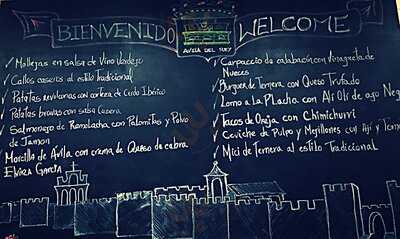 BIENVENIDO
WELCOME
AVILA DEL REY
Mollejas en salsa de Vino Verdejo
Callos caseros al estilo tradicional
Patatas revolconas con corteza de Cerdo Ibérico
Patatas bravas con salsa Casera
Salmorejo de Remolacha con Palomitas y Polvo
de Jamon
Morcilla de Avila con crema de Queso de cabra
Elvira Garcia
Carpaccio de calabacin con Vinagreta de
Nueces
Burguer de Ternera con Queso Trufado
Lomo a La Plancha con Ali Oli de ajo Negro
Tacos de Oreja con Chimichurri
Ceviche de Pulpo y Mejillones con Aji y
Mici de Ternera al estilo Tradicional